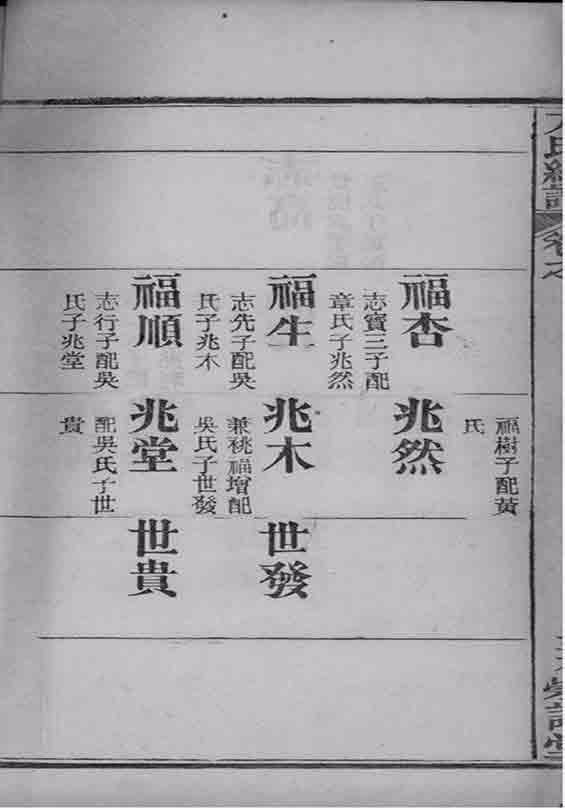 福樹子配黃
氏
福杏
志寶三子配
章氏子兆然
兆然
福生
志先子配吳
氏子兆木
兆木
兼祧福增配
吳氏子世發
世發
福順
志行子配吳
氏子兆堂
兆堂
配吳氏子世
貴
世貴